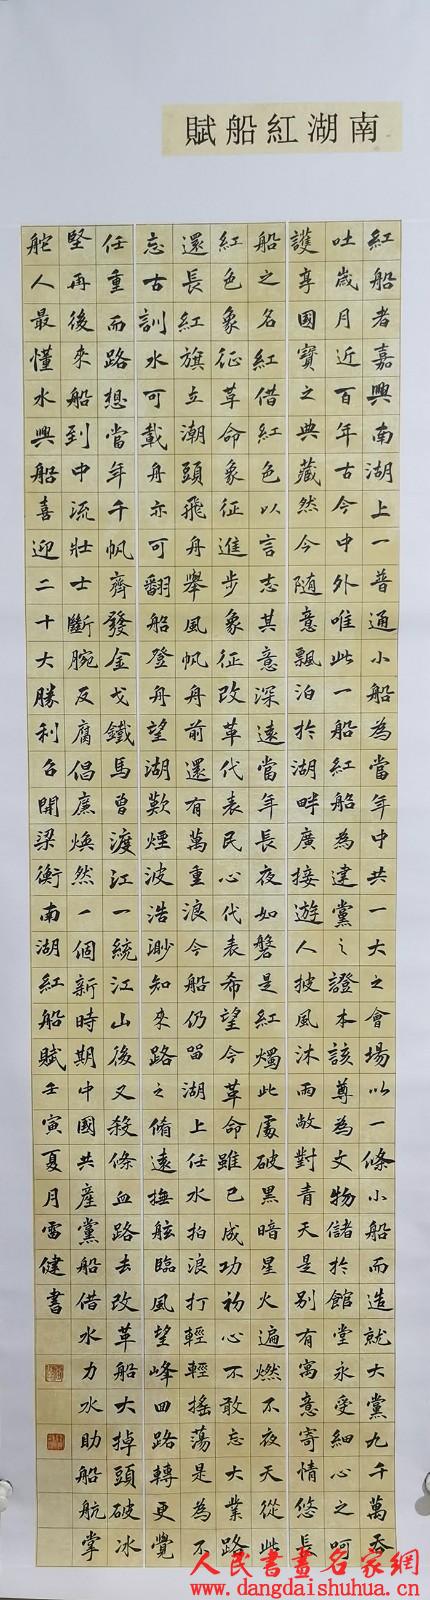 南湖紅船賦
紅船者嘉興南湖上一普通小船為當年中共一大之會場以一條小船而造就大黨九千萬吞
吐歲月近百年古今中外唯此一船紅船為建黨之證本該尊為文物儲於館堂永受細心之呵
護享國寶之典藏然今隨意飄泊於湖畔廣接遊人披風沐雨敞對青天是別有寓意寄情悠長
船之名紅借紅色以言志其意深遠當年長夜如磐是紅燭此處破黑暗星火遍燃不夜天從此
紅色象征革命象征進步象征改革代表民心代表希望今革命雖已成功初心不敢忘大業路
還長紅旗立潮頭飛舟舉風帆舟前還有萬重浪今船仍留湖上任水拍浪打輕輕搖蕩是為不
忘古訓水可載舟亦可翻船登舟望湖歎煙波浩渺知來路之脩遠撫舷臨風望峰回路轉更覺
任重而路想當年千帆齊發金戈鐵馬曾渡江一統江山後又殺條血路去改革船大掉頭破冰
堅再後來船到中流壯士斷腕反腐倡廉煥然一個新時期中國共產黨船借水力水助船航掌
舵人最懂水與船喜迎二十大勝利召開梁衡南湖紅船賦壬寅夏月雷健書
人民書畫名家網
www.dangdaishuhua.com